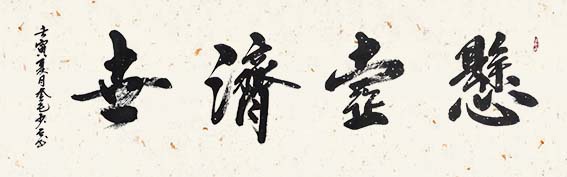 懸壺濟世
壬寅夏月